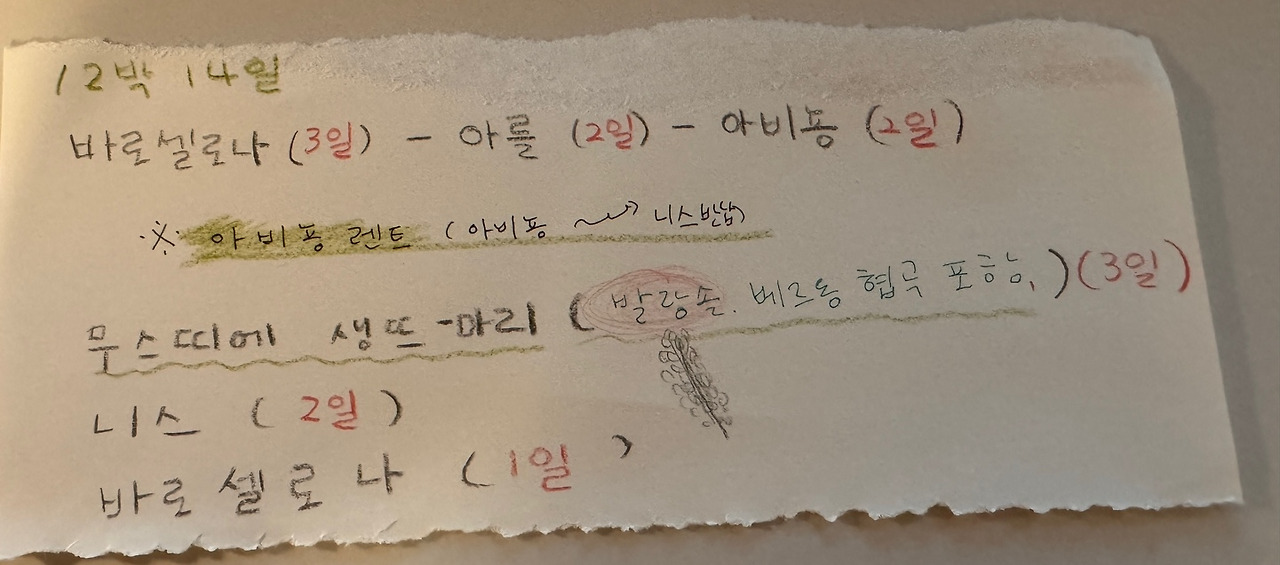 12박 14일
바로셀로나 (3일) - 아를 (2일) - 아비뇽 (2일)
※ 아비뇽 렌트 (아비뇽 → 니스반납)
무스띠에 생뜨-마리 (발랑솔. 베르동 협곡 포함,) (3일)
니스 (2일)
바로셀로나 (1일)